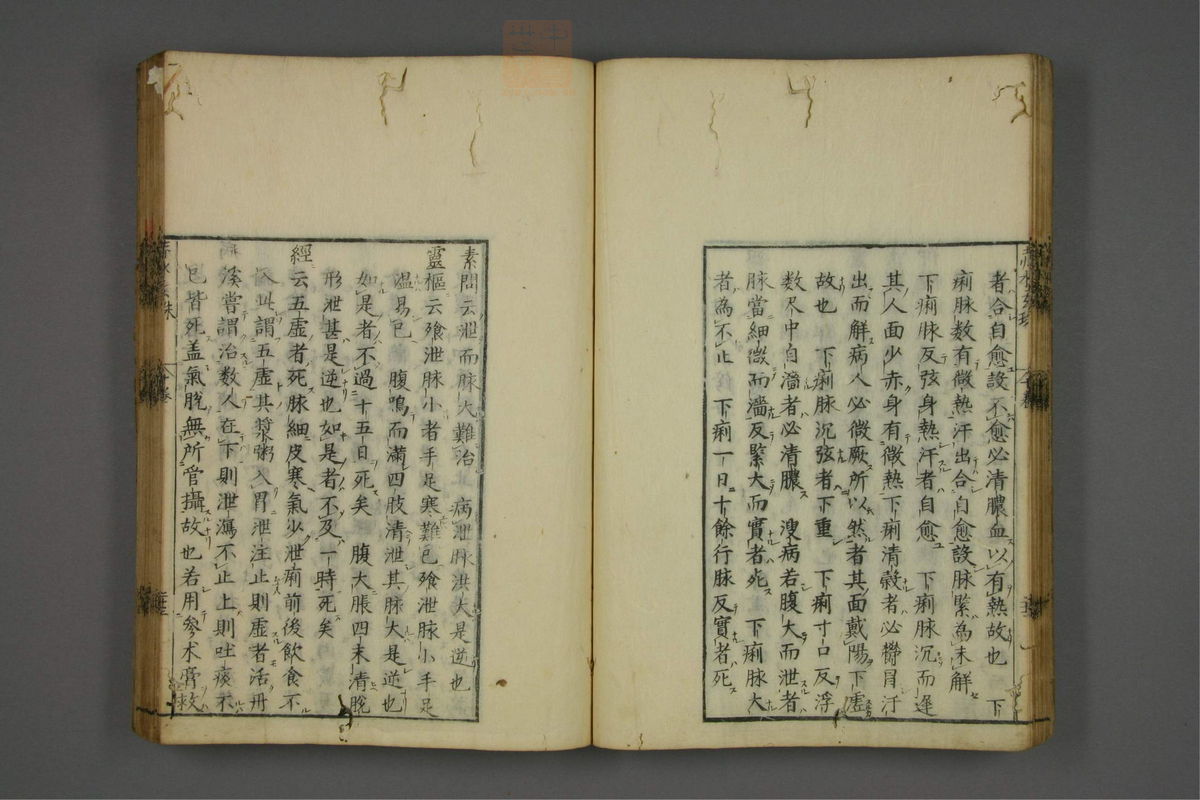 者合自愈設不愈必清膿血以有熱故也　下
痢脉数有微熱汗出合自愈設脉緊為未解
下痢脉反弦身熱汗者自愈　下痢脉沉而遲
其人面少赤身有微熱下痢清穀者必欝冒汗
出而解病人必微厥所以然者其面戴陽下虛
故也　下痢脉沉弦者下重　下痢寸口反浮
数尺中自濇者必清膿　溲病若腹大而泄者
脉當細微而濇反緊大而實者死　下痢脉大
者為不止　下痢一日十餘行脉反實者死
素問云泄而脉大難治　病泄脉洪大是逆也
靈樞云飱泄脉小者手足寒難已飱泄脉小手足
温易已　腹鳴而滿四肢清泄其脉大是逆也
如是者不過十五日死矣　腹大脹四末清脫
形泄甚是逆也如是者不及一時死矣
經云五虛者死脉細皮寒氣少泄痢前後飲食不
入此謂五虛其漿粥入胃泄注止則虛者活丹
溪嘗謂治数人在下則泄瀉不止上則吐痰不
已皆死盖氣脫無所管攝故也若用參朮膏救